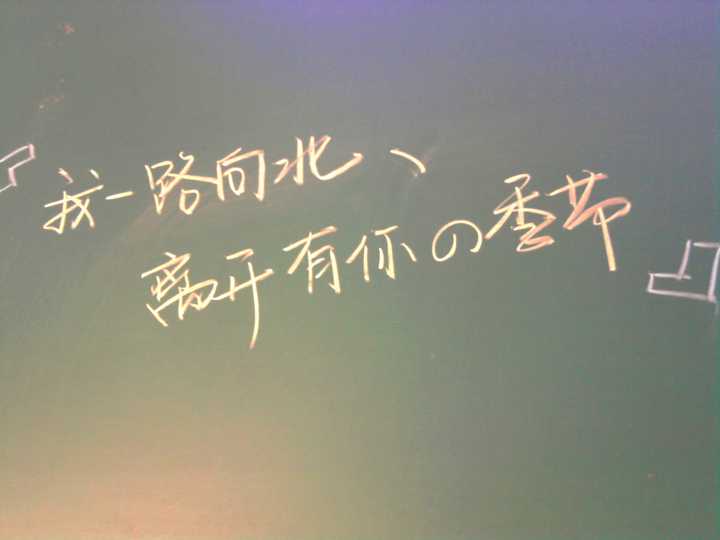 『我一路向北、
离开有你の季节』